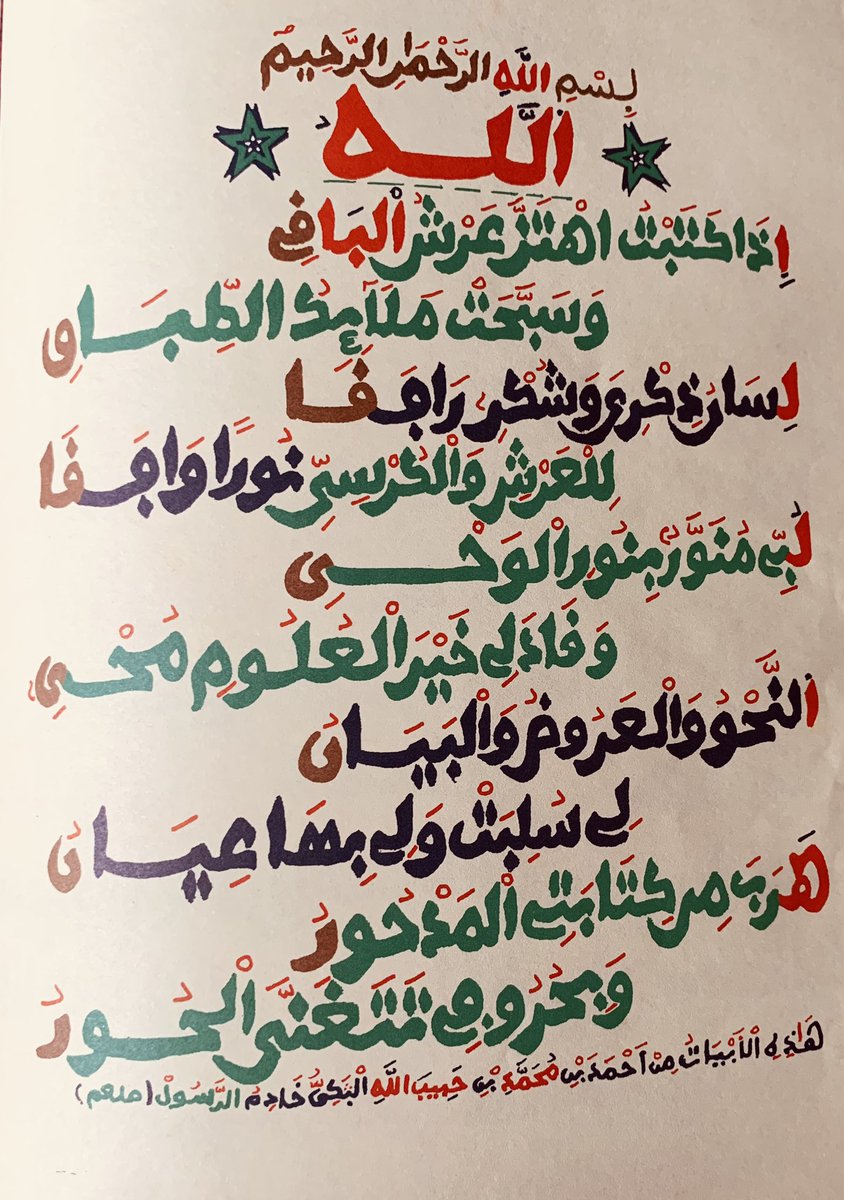 بِسْمِ اللَّهِ الرَّحْمَنِ الرَّحِيمِ
اَللَّهُ
إِذَا كَتَبْتُ اهْتَزَّ عَرْشُ الْبَاقِي
وَسَبَّحَتْ مَلَآئِكُ الطِّبَاقِ
لِسَانُ ذِكْرِي وَشُكْرِي رَافَقَا
لِلْعَرْشِ وَالْكُرْسِيِّ نُورًا وَافَقَا
لُبِّي مُنَوَّرٌ بِنُورِ الْوَحْيِ
وَقَادَ لِي خَيْرَ الْعُلُومِ مُحْيِ
اَلنَّحْوُ وَالْعَرُوضُ وَالْبَيَانُ
لِي سُلِبَتْ وَلِي بِهَا عِيَانُ
هَرَبَ مِنْ كِتَابَتِي الْمَدْحُورُ
وَبِحُرُوفِي تَتَغَنَّى الْحُورُ
هَذِهِ الْأَبْيَاتُ مِنْ اَحْمَدَ بْنِ مُحَمَّدِ بْنِ حَبِيبَ اللَّهِ الْبَكِّيُّ خَادِمُ الرَّسُولْ (صلعم)